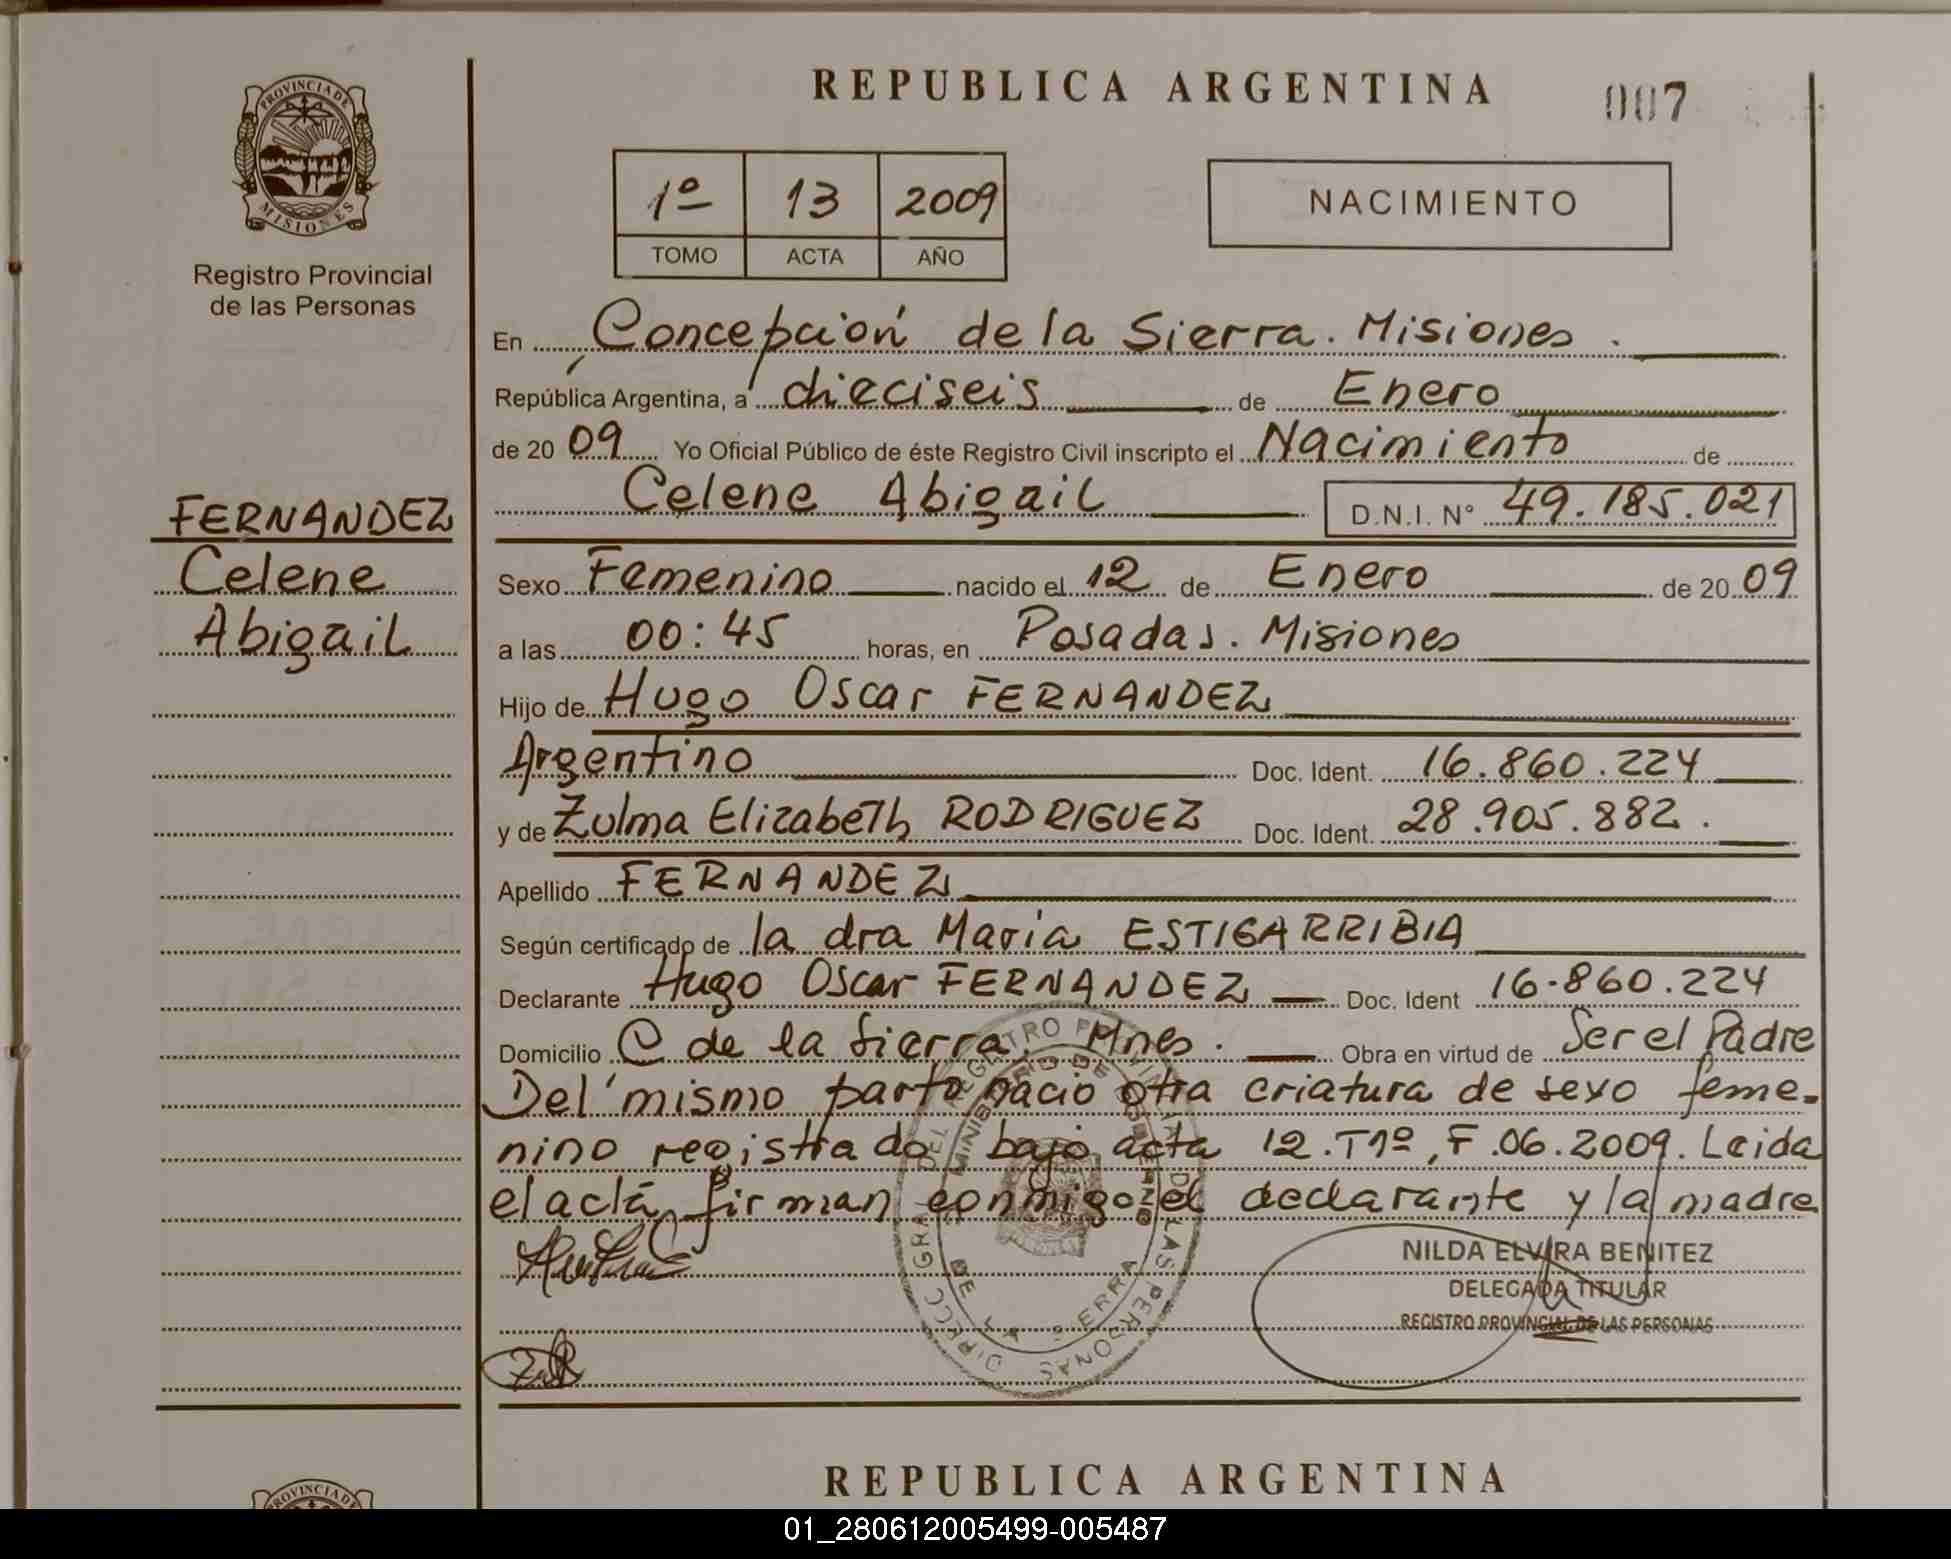 PROVINCIA DE
MISIONES
Registro Provincial
de las Personas
FERNANDEZ
Celene
Abigail
REPUBLICA ARGENTINA
007
1º 13 2009
TOMO ACTA AÑO
NACIMIENTO
En Concepción de la Sierra. Misiones.
República Argentina, a dieciseis de Enero
de 2009 Yo Oficial Público de éste Registro Civil inscripto el Nacimiento de
Celene Abigail D.N.I. N° 49.185.021
Sexo Femenino nacido el 12 de Enero de 2009
a las 00:45 horas, en Posadas. Misiones
Hijo de Hugo Oscar FERNANDEZ
Argentino Doc. Ident. 16.860.224
y de Zulma Elizabeth RODRIGUEZ Doc. Ident. 28.905.882.
Apellido FERNANDEZ
Según certificado de la dra Maria ESTIGARRIBIA
Declarante Hugo Oscar FERNANDEZ Doc. Ident 16.860.224
Domicilio C de la Sierra. Mnes. Obra en virtud de Ser el Padre
Del mismo parto nacio otra criatura de sexo feme-
nino registrado bajo acta 12.T1º,F.06.2009. Leida
el acta firman conmigo el declarante y la madre
NILDA ELVIRA BENITEZ
DELEGADA TITULAR
REGISTRO PROVINCIAL DE LAS PERSONAS
DIRECC GRAL DEL REGISTRO PROVINCIAL DE LAS PERSONAS
MINISTERIO DE GOBIERNO
DE LA SIERRA
REPUBLICA ARGENTINA
PROVINCIA DE
01_280612005499-005487